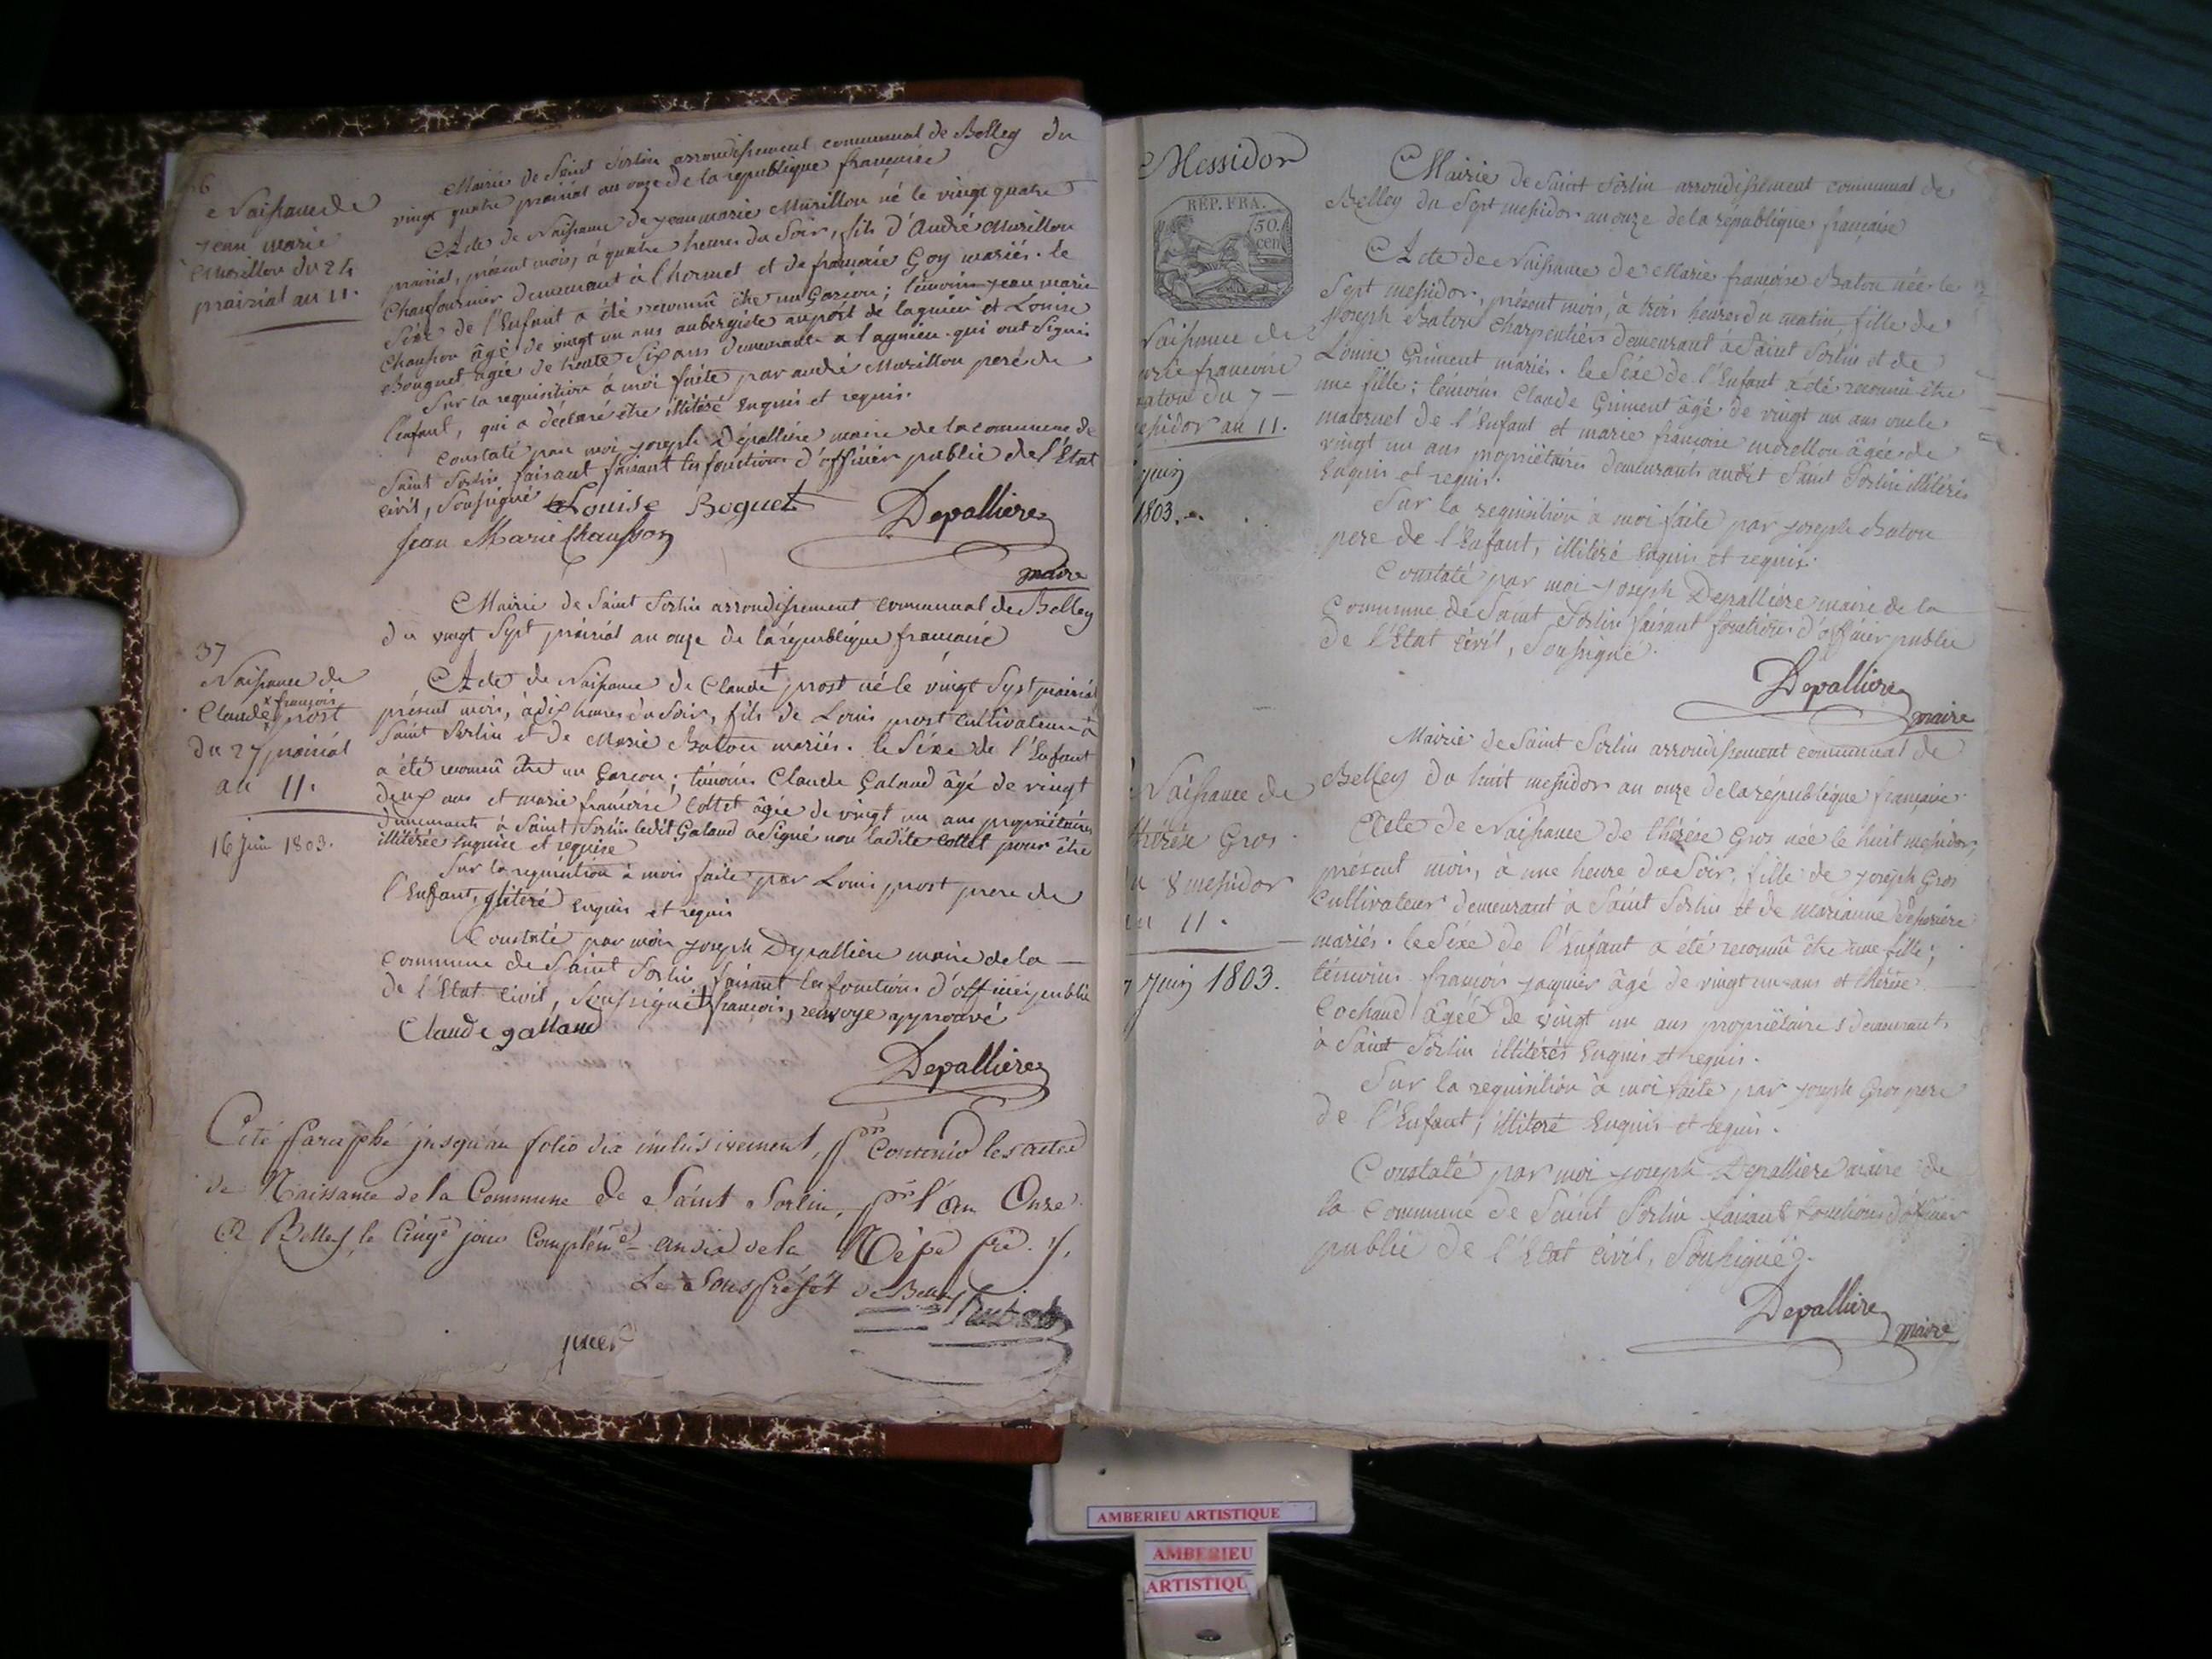 36
Naissance de
Jean marie
Murillon du 24
prairial an 11.
Mairie de Saint Sorlin arrondissement communal de Belley du
vingt quatre prairial an onze de la republique française
Acte de Naissance de jean marie Murillon né le vingt quatre
prairial, présent mois, à quatre heures du Soir, fils d'André Murillon
Chaufournier demeurant à l'hormet et de françoise Goy mariés. le
Séxe de l'Enfant a été reconnû être un Garcon; témoins jean marie
Chausson âgé de vingt un ans aubergiste au port de lagnieu et Louise
Bouquet âgée de trente Six ans demeurante a lagnieu qui ont Signés
Sur la requisition à moi faite par andré Murillon pere de
l'enfant, qui a déclaré être illitéré Enquis et requis.
Constaté par moi joseph Dépalliere maire de la commune de
Saint Sorlin faisant faisant les fonctions d'officier public de l'Etat
civil, Soussigné Louise Boguet Depalliere
Jean Marie Chausson
maire
37
Naissance de
Claude x françois
prost
du 27 prairial
an 11.
16 Juin 1803.
Mairie de Saint Sorlin arrondissement communal de Belley
du vingt Sept prairial an onze de la république francaise
Acte de Naissance de Claude + prost né le vingt Sept prairial
présent mois, à dix heures du Soir, fils de Louis prost Cultivateur à
Saint Sorlin et de Marie Baton mariés. le Séxe de l'Enfant
a été reconnû être un Garcon; témoins Claude Galand âgé de vingt
deux ans et marie francoise Collet âgée de vingt un ans propriétaires
demeurants à Saint Sorlin ledit Galand a Signé non ladite Collet pour être
illitérée Enquise et requise
Sur la requisition à mois faite par Louis prost pere de
l'Enfant, illitéré Enquis et requis
Constaté par moi joseph Depalliere maire de la
Commune de Saint Sorlin faisant les fonctions d'officier public
de l'Etat Civil, Soussigné + françois, renvoye approuvé
Claude galland
Depalliere
Coté Paraphé jusqu'au folio dix inclusivement, pr Contenir les actes
de Naissance de la Commune de Saint Sorlin, pr l'an Onze.
A Belley le Cinqe jour Complémre an dix de la Répe fse.
Le Sous Préfet de Belley
Messidor
RÉP. FRA.
50.
cen
Naissance de
francoise
Baton du 7
messidor an 11.
juin
1803.
Mairie de Saint Sorlin arrondissement communal de
Belley du Sept messidor an onze de la republique française
Acte de Naissance de Marie francoise Baton née le
Sept messidor, présent mois, à trois heures du matin, fille de
joseph Baton charpentier demeurant à Saint Sorlin et de
Louise Griment mariés. le Séxe de l'Enfant a été reconnu être
une fille; témoins Claude Griment âgé de vingt un ans oncle
maternel de l'Enfant et marie francoise morellon âgée de
vingt un ans propriétaires demeurants audit Saint Sorlin illitérés
Enquis et requis.
Sur la requisition à moi faite par joseph Baton
pere de l'Enfant, illitéré Enquis et requis.
Constaté par moi joseph Depalliere maire de la
Commune de Saint Sorlin faisant fonctions d'officier public
de l'Etat civil, Soussigné.
Depalliere
maire
Naissance de
thérése Gros
8 messidor
11.
juin 1803.
Mairie de Saint Sorlin arrondissement communal de
Belley du huit messidor an onze de la république française
Acte de Naissance de thérèse Gros née le huit messidor,
présent mois, à une heure du Soir, fille de joseph Gros
Cultivateur demeurant à Saint Sorlin et de marianne
mariés. le Séxe de l'Enfant a été reconnû être une fille;
témoins françois jaquier âgé de vingt un ans et thérèse
Cochaud âgée de vingt un ans propriétaires demeurants
à Saint Sorlin illitérés Enquis et requis.
Sur la requisition à moi faite par joseph Gros pere
de l'Enfant, illitéré Enquis et requis.
Constaté par moi joseph Depalliere maire de
la Commune de Saint Sorlin faisant fonctions d'officier
public de l'Etat civil, Soussigné.
Depalliere
maire
AMBERIEU ARTISTIQUE
AMBERIEU
ARTISTIQU